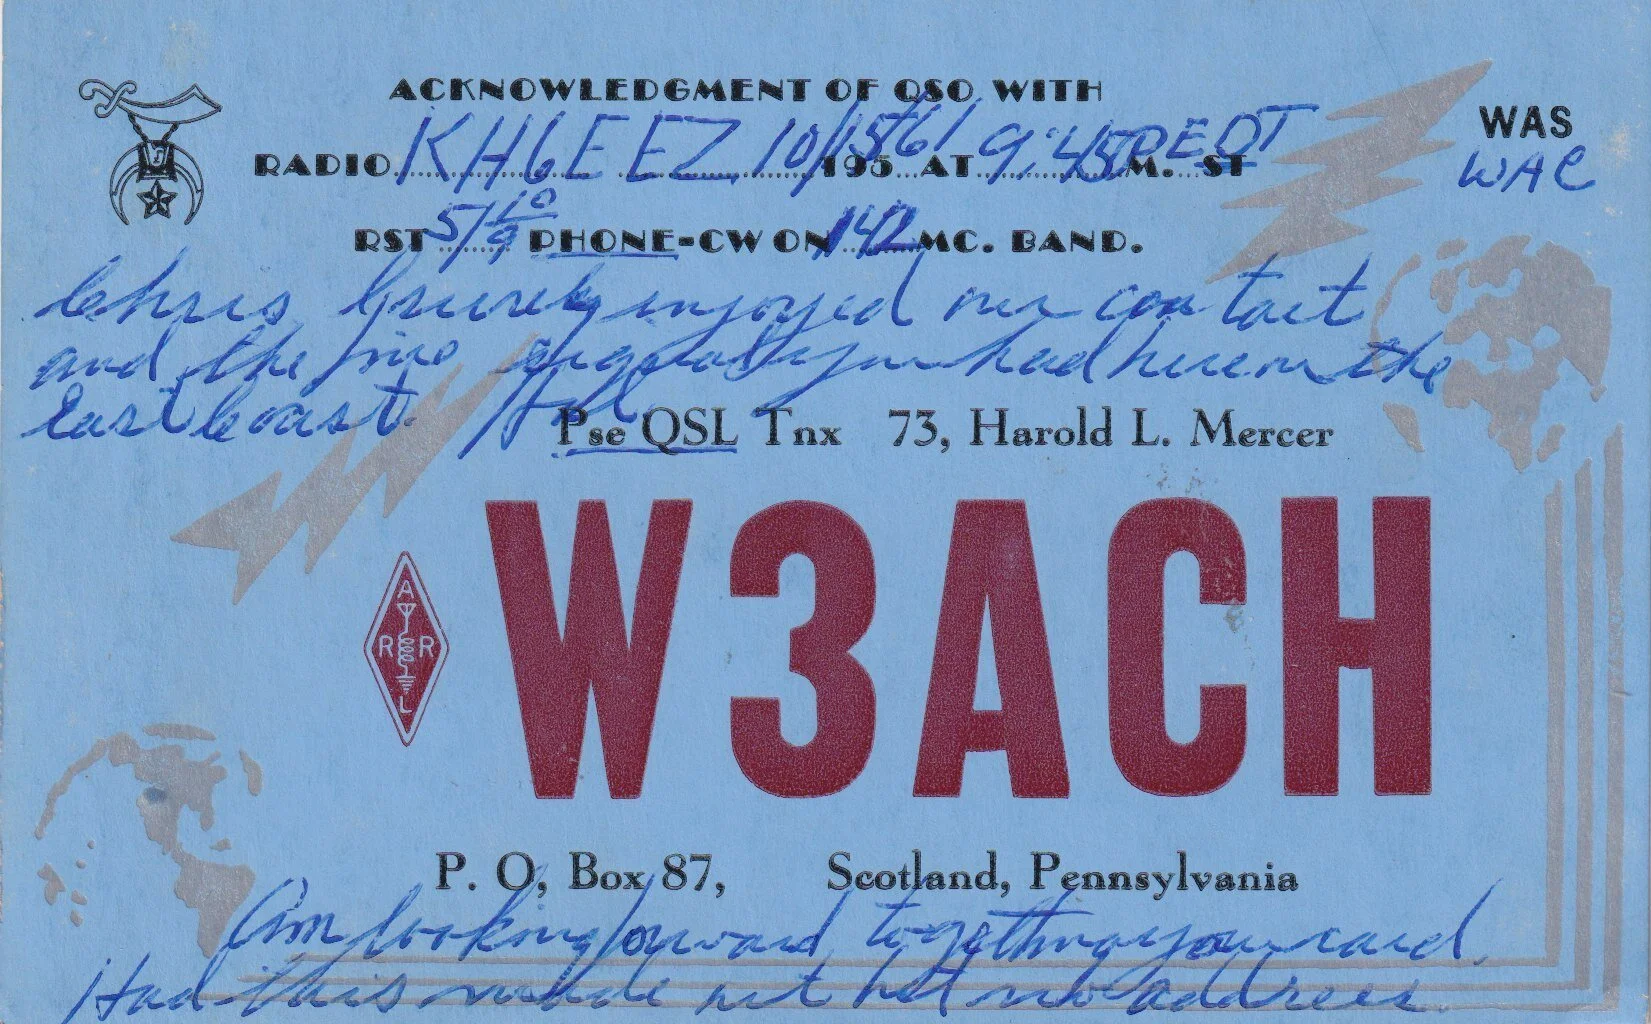 ACKNOWLEDGMENT OF QSO WITH
WAS
WAC
RADIO KH6EEZ 10/15/61 195 AT 9:45 P.M. EDT ST
RST 5/9 10 PHONE-CW ON 14 MC. BAND.
Chris enjoyed our contact
and the fine signals you had here on the
East Coast. Hal
Pse QSL Tnx 73, Harold L. Mercer
W3ACH
A
R R
L
P. O, Box 87, Scotland, Pennsylvania
Am looking forward to getting your card.
Had this made out but no address.